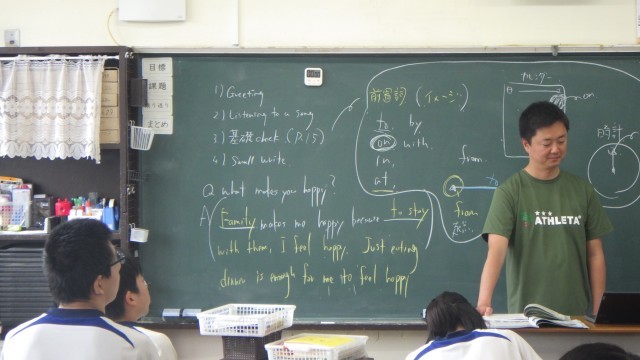 目標
課題
まとめ
1) Greeting
2) Listening to a song
3) 基礎check (P.15)
4) Small write
Q What makes you happy?
A Family makes me happy because to stay
with them, I feel happy. Just eating
dinner is enough for me to feel happy
前置詞 (イメージ)
to. by
on with.
in.
at.
from
to
from
on
時計
ATHLETA